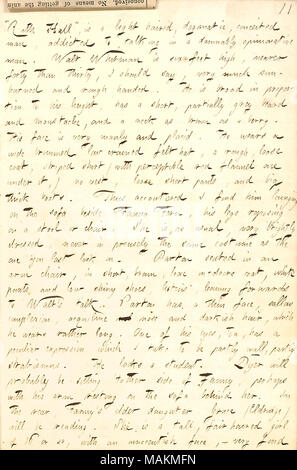 connected. No means of getting the ann
11
"Ruth Hall" is a light haired, dogmatic, conceited
man addicted to talking in a damnably opinionative
man. Walt Whitman is six feet high, nearer
forty than thirty, I should say, very much sun-
burned and rough handed. He is broad in propor-
tion to his height, has a short, partially grey beard
and moustache, and a neck as brown as a berry.
His face is very manly and placid. He wears a
wide brimmed low crowned felt hat a rough, loose
coat, striped shirt with perceptible red flannel one
under it, no vest, loose short pants, and big
thick boots. Thus accoutred I find him lounging
on the sofa beside Fanny Fern, his legs reposing
on a stool or chair. She is, as usual very brightly
dressed, never in precisely the same costume as the
one you last look in. Parton seated in an
arm chair, in short, brown, loose in-doors coat, white
pants, and low shiny shoes, listens leaning forwards
to Walt's talk. Parton has a thin face, sallow
complexion, aquiline nose and darkish hair, which
he wears rather long. One of his eyes, too, has a
peculiar expression which I take to be partly null, partly
strabismus. He looks a student. Dyer will
probably be sitting t'other side of Fanny, perhaps
with his arm resting on the sofa behind her. In
the rear Fanny's elder daughter Grace (Eldredge)
will be reading. She is a tall, fair haired girl
of 16 or so, with an innocentish face, very fond
alamy
Image ID: MAKMFN
www.alamy.com